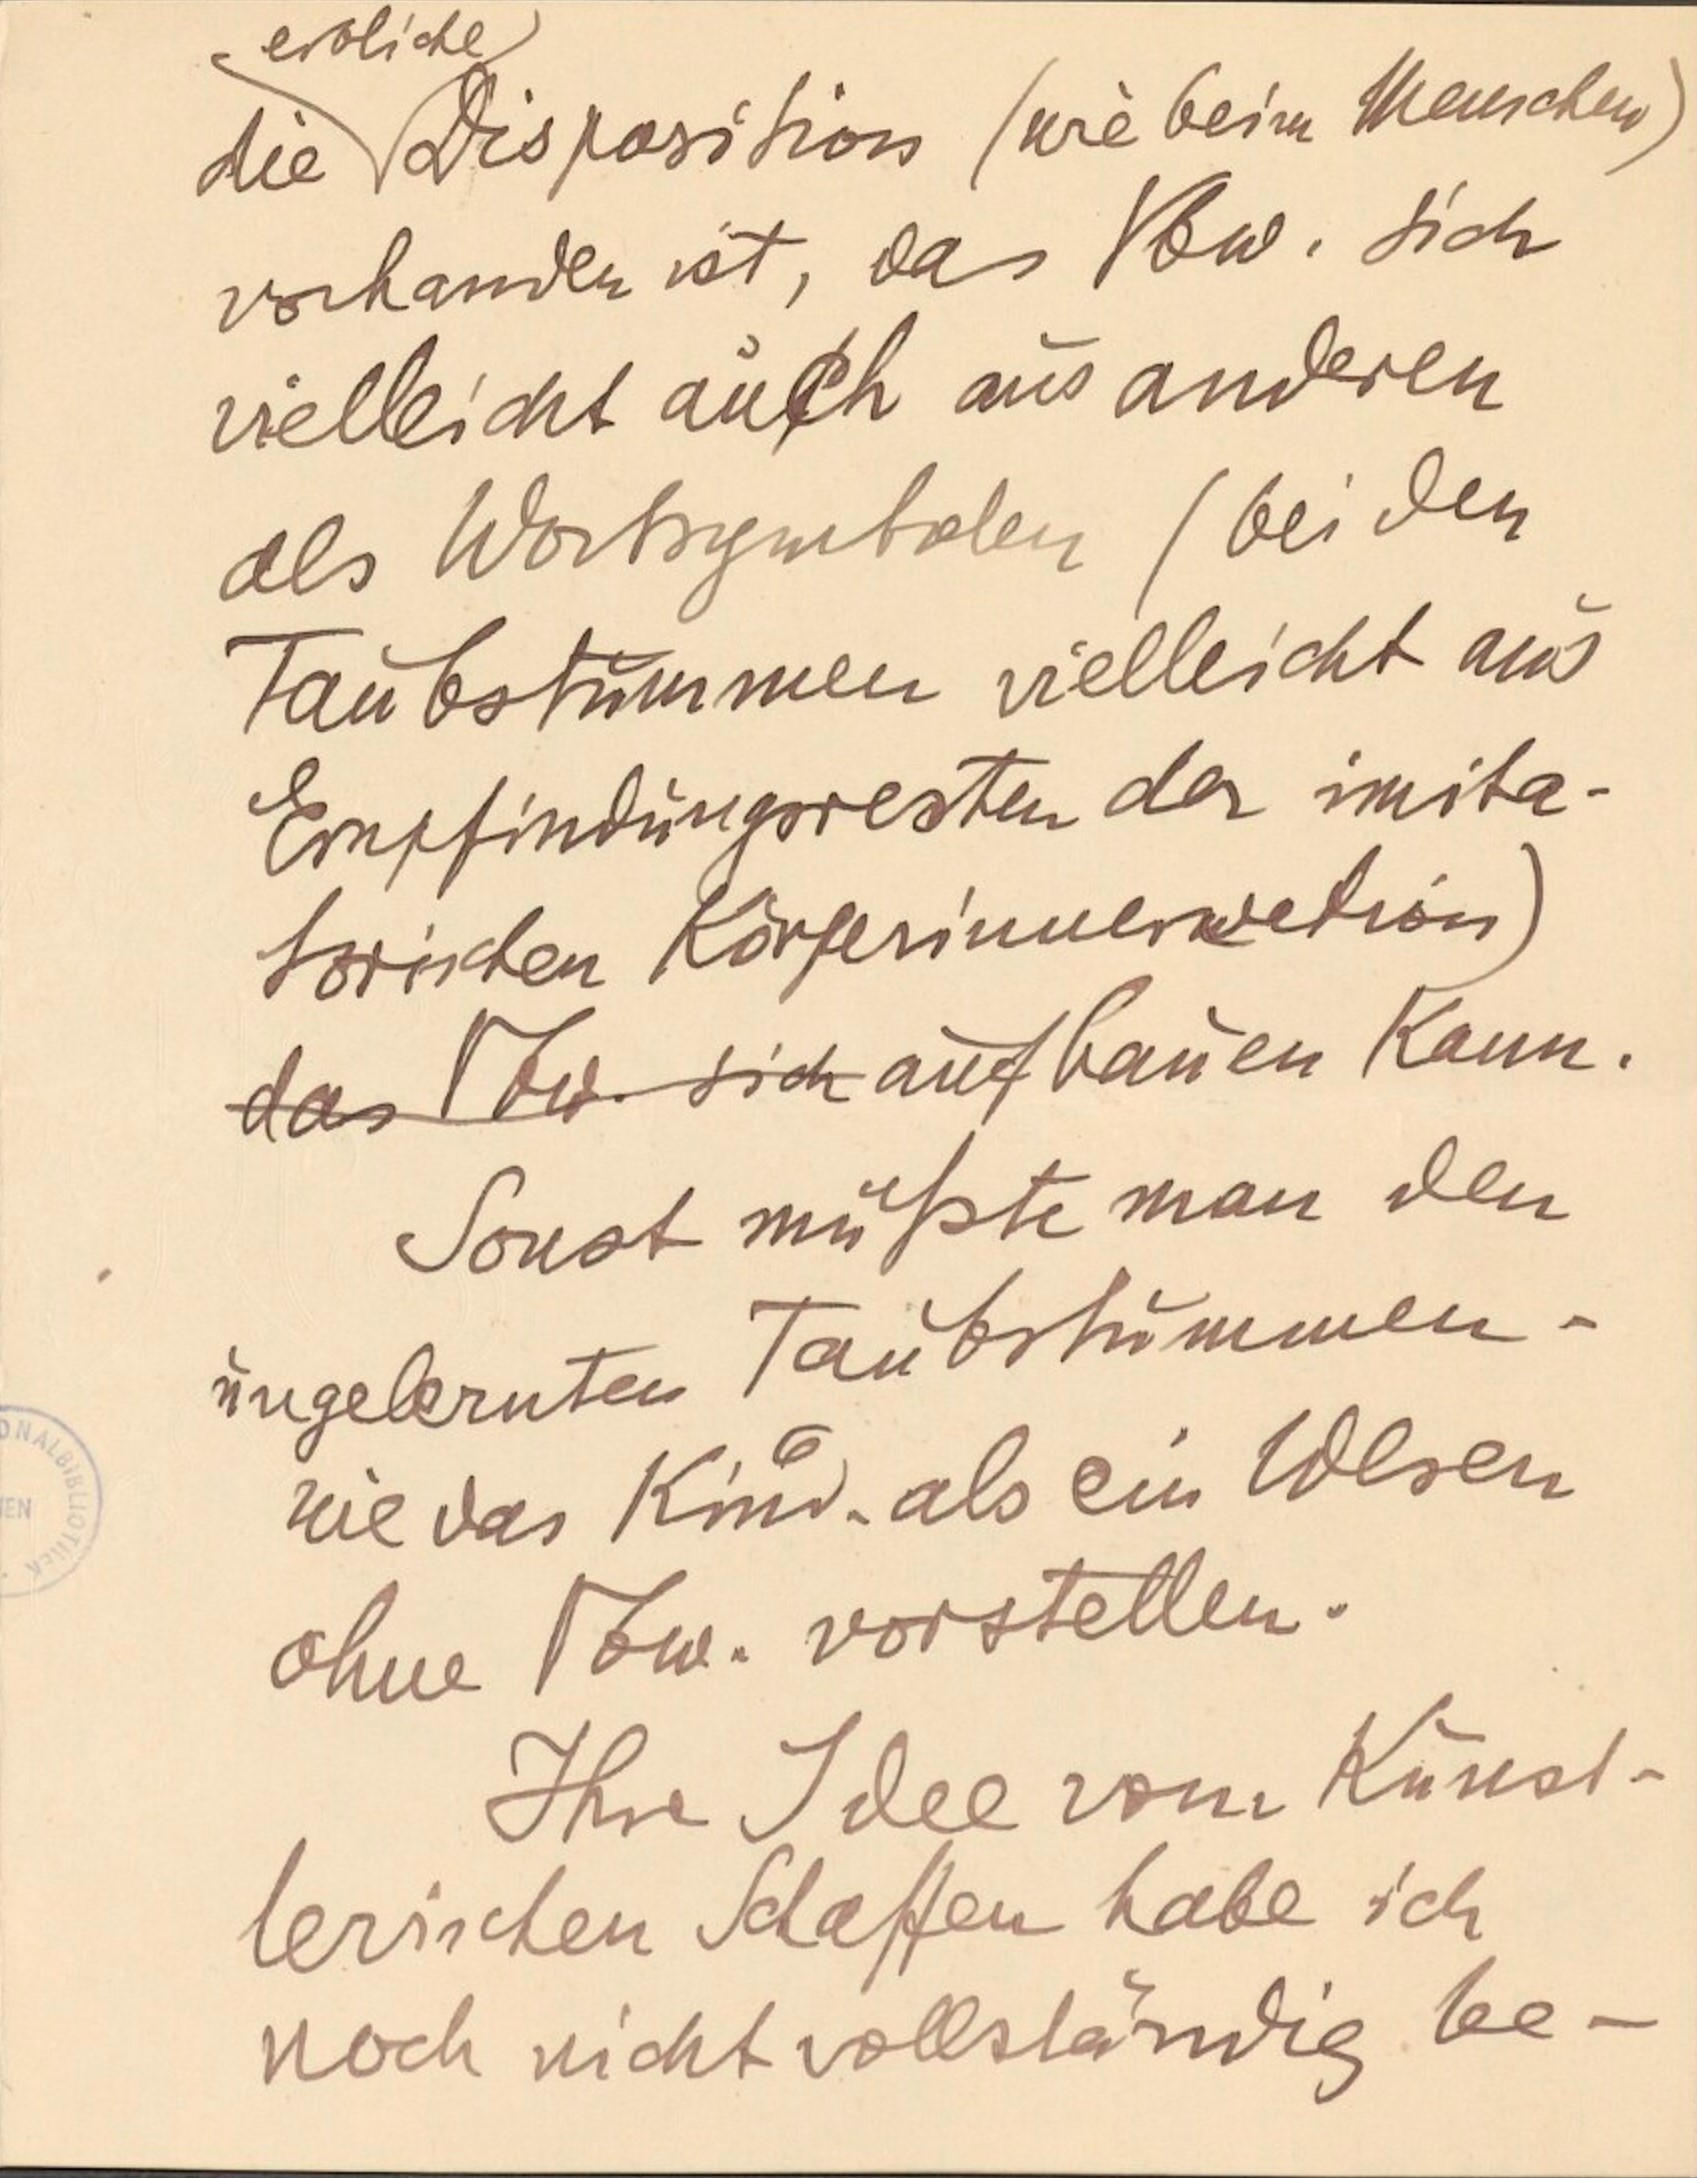 erbliche
die Disposition (wie beim Menschen)
vorhanden ist, das Vbw. sich
vielleicht auch aus anderen
als Wortsymbolen (bei den
Taubstummen vielleicht aus
Empfindungsresten der imita-
torischen Körperinnervation)
das Vbw. sich aufbauen kann.
Sonst müßte man den
ungelernten Taubstummen -
wie das Kind - als ein Wesen
ohne Vbw. vorstellen.
Ihre Idee vom künst-
lerischen Schaffen habe ich
noch nicht vollständig be-
ONALBIBLIOTHEK
IEN